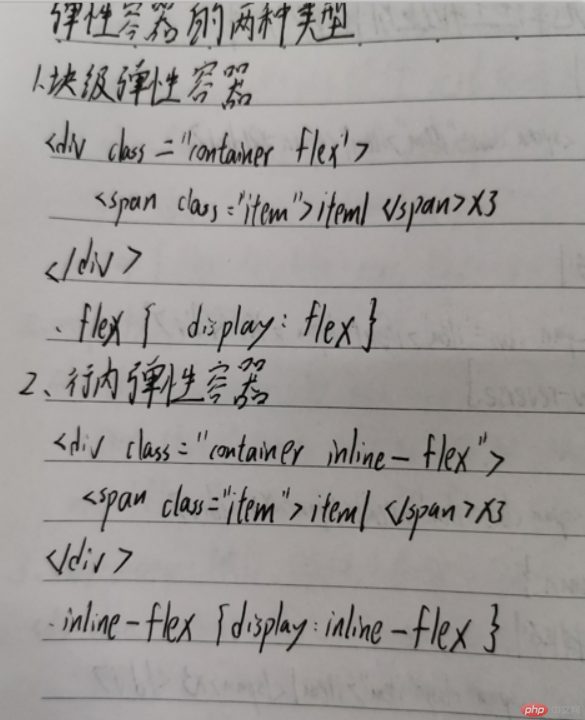 弹性容器的两种类型
1.块级弹性容器
<div class="container flex">
<span class="item">item1 </span>X3
</div>
.flex{ display: flex}
2、行内弹性容器
<div class="container inline-flex">
<span class="item">item1 </span>X3
</div>
.inline-flex {display:inline-flex}
php